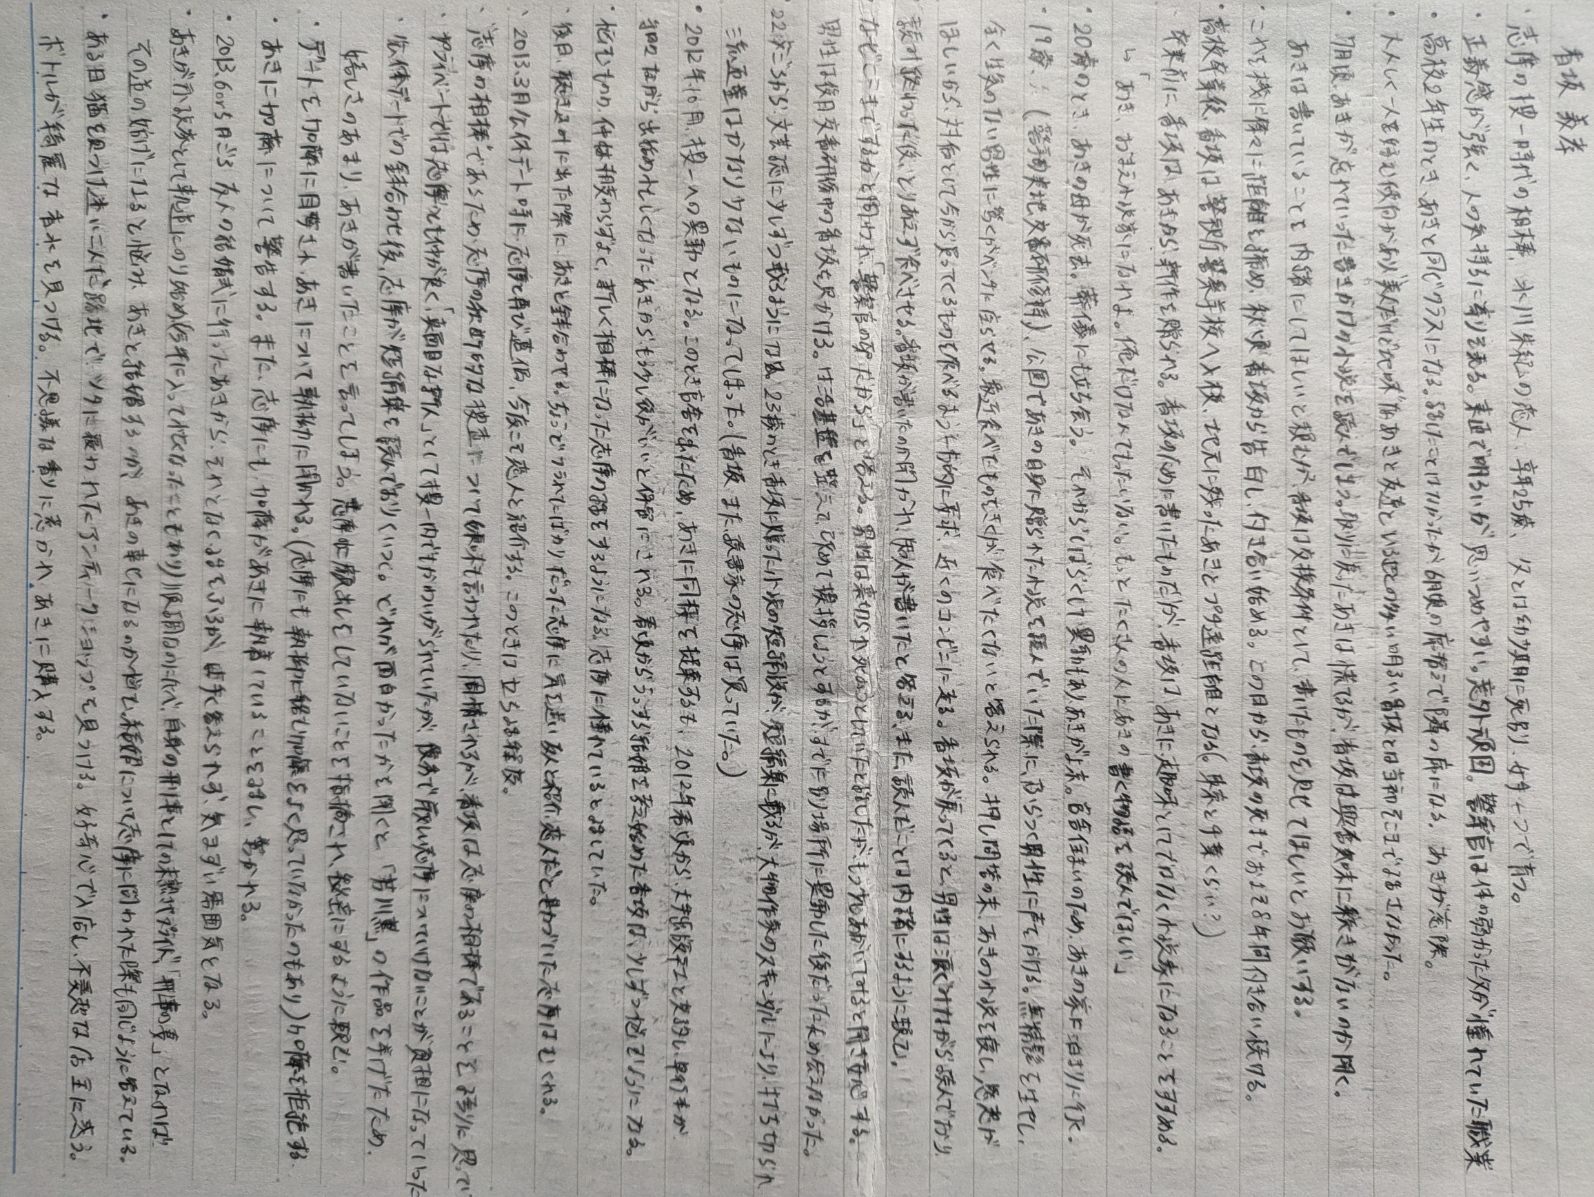 香坂 義孝
・志摩の捜一時代の相棒、氷川朱紀の恋人、享年25歳、父とは幼少期に死別、女手一つで育つ。
・正義感が強く、人の気持ちに寄りそえる。素直で明るいが思いつめやすい。意外と頑固。警察官は体の弱かった父が憧れていた職業
・高校2年生のとき、あきと同じクラスになる。話したことはなかったが6月頃の席替えで隣の席になる。あきが窓際。
・大人しく一人を好む傾向があり美人だけど地味なあきと友達といることの多い明るい香坂とは当初そこまで話さなかった。
・7月頃、あきが忘れていった書きかけの小説を読んでしまう。取りに戻ったあきは慌てるが、香坂は興奮気味に続きがないのか聞く。
あきは書いていることを内緒にしてほしいと頼むが、香坂は交換条件として、書いたものを見せてほしいとお願いする。
・これを機に徐々に距離を縮め、秋頃香坂から告白し、付き合い始める。この日から、香坂の死までおよそ8年間付き合い続ける。
・高校卒業後、香坂は警視庁警察学校へ入校、地元に残ったあきとプチ遠距離となる(東京と千葉くらい?)
・卒業前に、香坂はあきから新作を贈られる。香坂のために書いたものだが、香坂はあきに趣味としてではなく小説家になることをすすめる。
↳「あき、おまえ小説家になれよ。俺だけなんてもったいない。もっとたくさんの人にあきの書く物語を読んでほしい」
・20歳のとき、あきの母が死去。葬儀にも立ち会う。それからしばらくして異動もあり、あきが上京。官舎住まいのため、あきの家に泊まりに行く。
・19歳、(警察学校実地交番研修時)、公園であきの自身に贈られた小説を読んでいた際に、ふらつく男性に声をかける。無精髭を生やし、
全く生気のない男性に驚くがベンチに座らせる。最近食べたものをきくが食べたくないと答えられる。押し問答の末、あきの小説を渡し、感想が
ほしいから、対価として今から買ってくるものを食べるよう一方的に要求、近くのコンビニに走る。香坂が戻ってくると、男性は涙ぐみながら読んでおり、
読み終わった後、とりあえず食べさせる。香坂が書いたのか聞かれ、知人が書いたと答える、また、読んだことは内緒にするように頼む。
なぜここまでするかと問われ、「警察官の卵だから」と答える。男性は裏切られ死のうとしていたと話したが、もう少しあがいてみると聞き安心する。
男性は後日交番研修中の香坂を見かける。生活基盤を整えて、改めて挨拶しようとするが、すでに別の場所に異動した後だったため会えなかった。
22歳ごろから、文芸誌に少しずつ載るようになる。23歳のとき香坂に贈った小説の短編版が、短編集に載るが、大物作家のスキャンダルにより、打ち切られ
流通量はかなり少ないものになってしまった。(香坂、また、読書家の志摩は買っていた。)
・2012年10月、捜一への異動となる。このとき官舎を出たため、あきに同棲を提案するも、2012年春頃から、大手出版社と交渉し、単行本が
細々ながら出始め忙しくなったあきからもう少し後がいいと保留にされる。春頃からうっすら結婚を考え始めた香坂は、少しずつ悩むようになる。
・悩むものの、仲は相変わらずよく、新しく相棒になった志摩の話をするようになる。志摩に憧れていると話していた。
・後日、聴き込みに出た際に、あきと鉢合わせる。ちょうどフラれたばかりだった志摩に気を遣い友人と紹介、恋人だと勘づいた志摩はむくれる。
・2013.3月公休デート時に志摩と再び遭遇、今度こそ恋人と紹介する。このときは立ち話程度。
・"志摩の相棒"であるため、志摩の独断的な捜査について嫌味も言われたり、同情されるが、香坂は志摩の相棒であることを誇りに思ってい
・プライベートでは志摩とも仲が良く、「真面目な新人」として捜一内でもかわいがられていたが、優秀で厳しい志摩についていけないことが負担になっていった
・公休デートでの鉢合わせ後、志摩が短編集を読んでおりくいつく。どれが面白かったかを聞くと、「芳川黒」の作品を挙げたため、
嬉しさのあまり、あきが書いたことを言ってしまう。志摩に顔出しをしていないことを指摘され、秘密にするように頼む。
・デートを加藤に目撃され、あきについて執拗に聞かれる。(志摩にも執拗に絡む加藤をよく思っていなかったのもあり)加藤を拒絶する。
・あきに加藤について警告する。また、志摩にも加藤があきに執着していることを話し、驚かれる。
・2013.6or5月ごろ 友人の結婚式に行ったあきから、それとなく話をふるが、上手く答えられず、気まずい雰囲気となる。
・あきが小説家として軌道にのり始め(今年に入って忙しくなったこともあり)順調なのに比べ、自身の刑事としての未熟さやプライド、「刑事の妻」となれば
その道の妨げになると悩み、あきと結婚するのが、あきの幸せになるのか悩む。結婚について志摩に問われた際も同じように答えている。
・ある日猫を見つけ、迷い込んだ路地で、ツタに覆われたアンティークショップを見つける。好奇心で入店し、不愛想な店主に惑う。
ボトルが綺麗な香水を見つける。不思議な香りに惹かれ、あきに購入する。